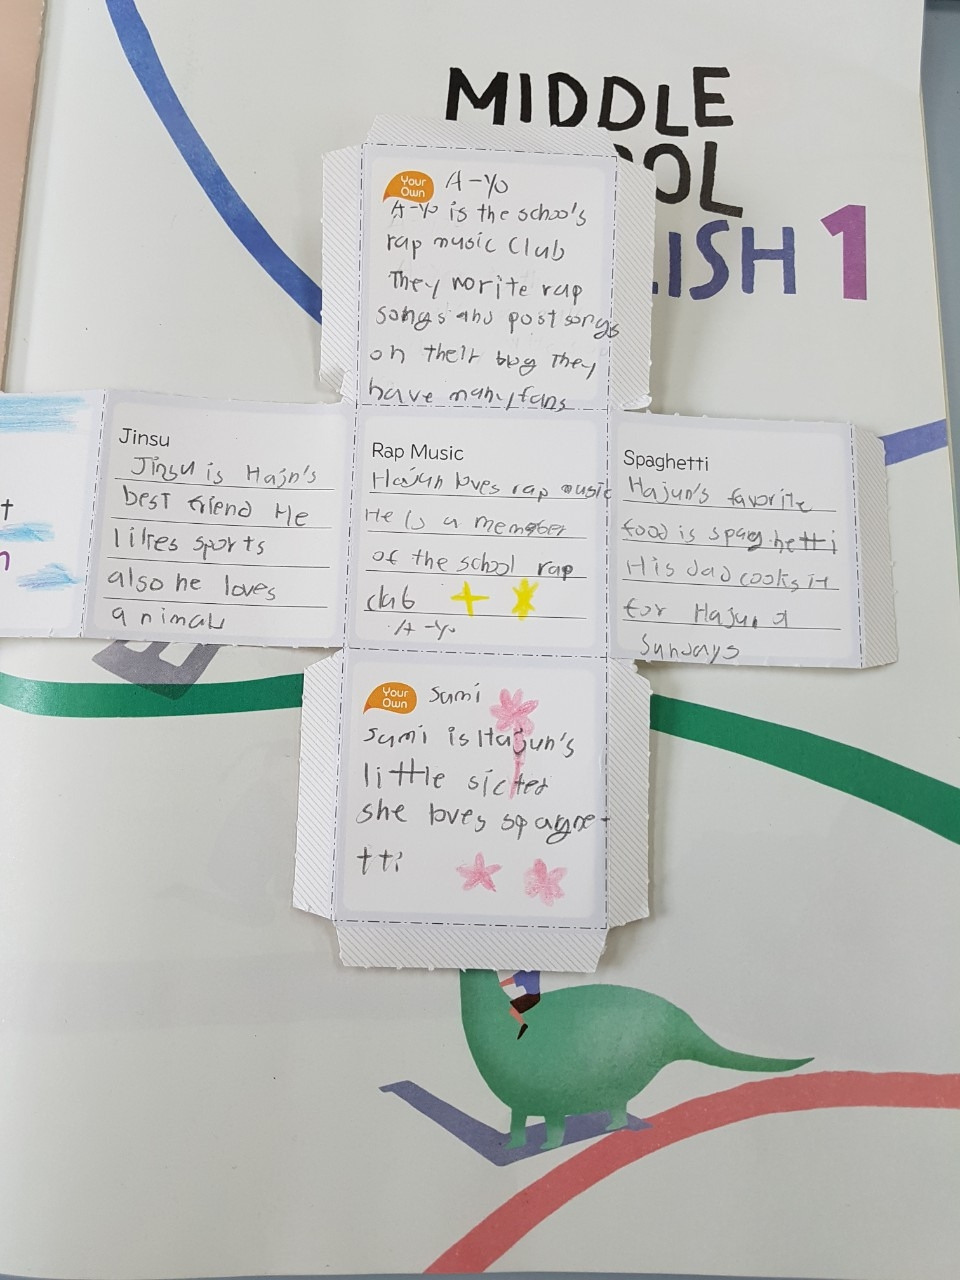 MIDDLE
OOL
LISH 1
Your
Own
A-Yo
A-Yo is the schoo's
rap music Club
They worite rap
songs and post songs
on their blog They
have many fans
t
n
Jinsu
Jinsu is Hajn's
best friend He
likes sports
also he loves
animals
Rap Music
Hajun loves rap music
He is a member
of the school rap
club
A-Yo
Spaghetti
Hajun's favorite
food is spaghetti
His dad cooks it
for Hajun
Sundays
Your
Own
Sumi
Sumi is Hajun's
little sicter
she loves
tti